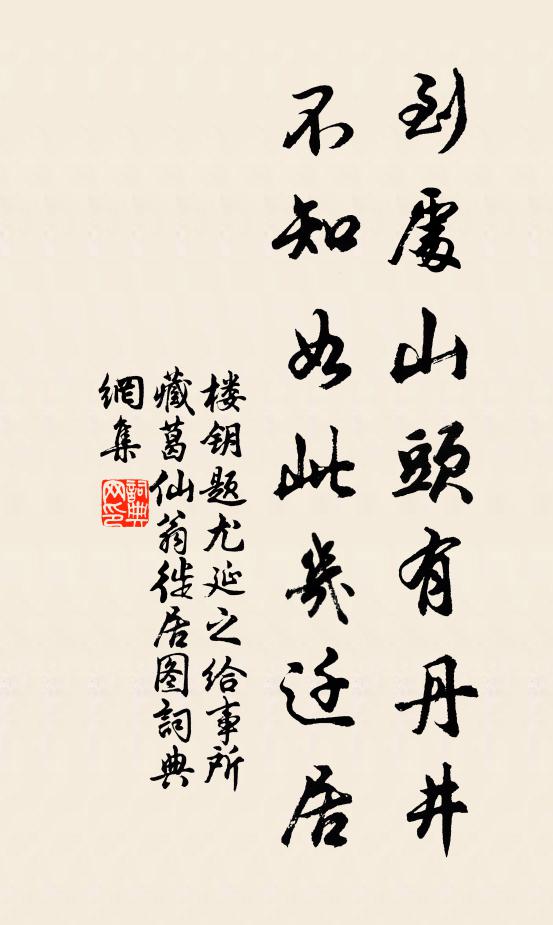 到處山頭有丹井
不知如此幾迁居
楼钥题尤延之给事所
藏葛仙翁徙居图詞典
網集
詞典
网印